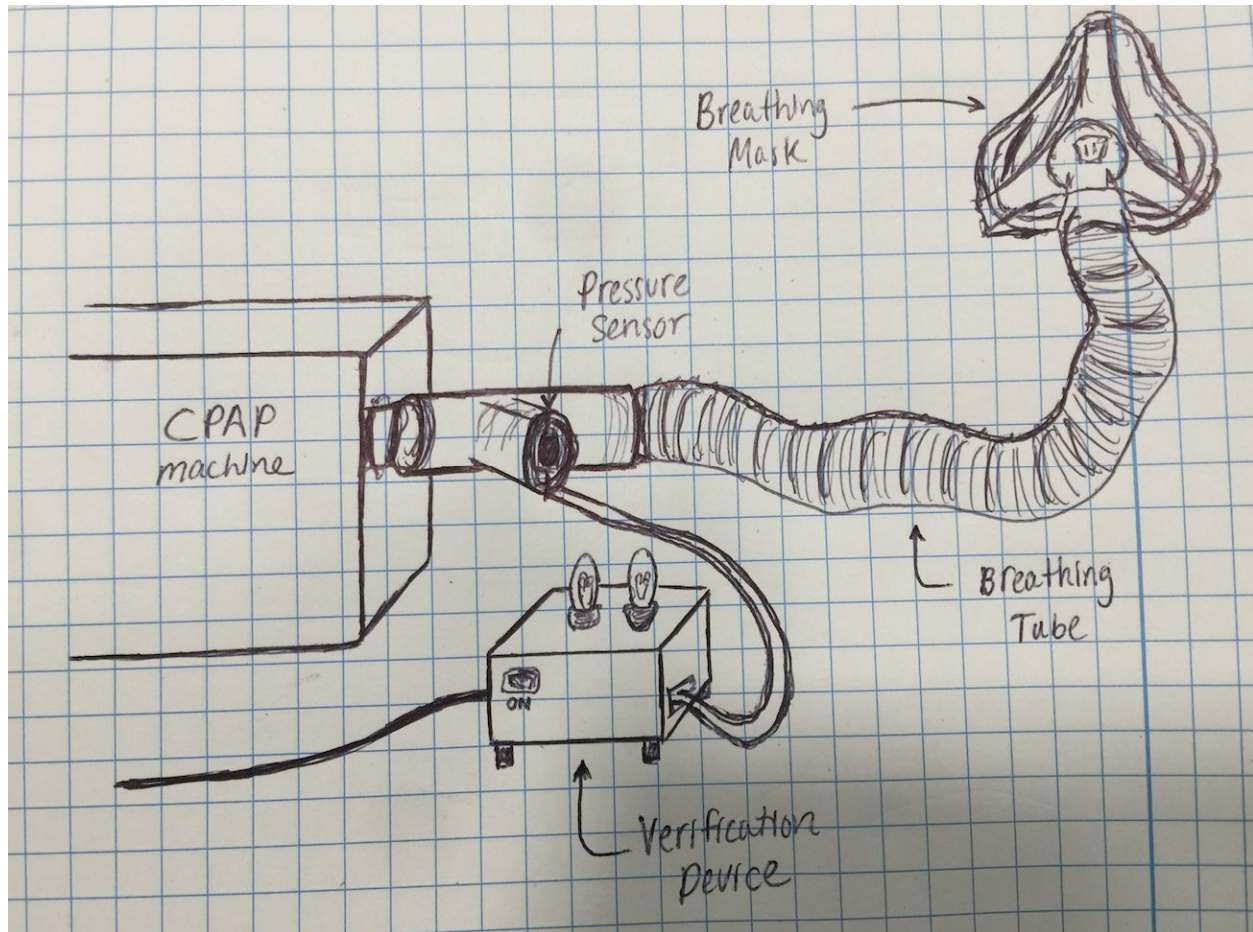 Breathing
Mask
Pressure
Sensor
CPAP
machine
Breathing
Tube
ON
Verification
Device